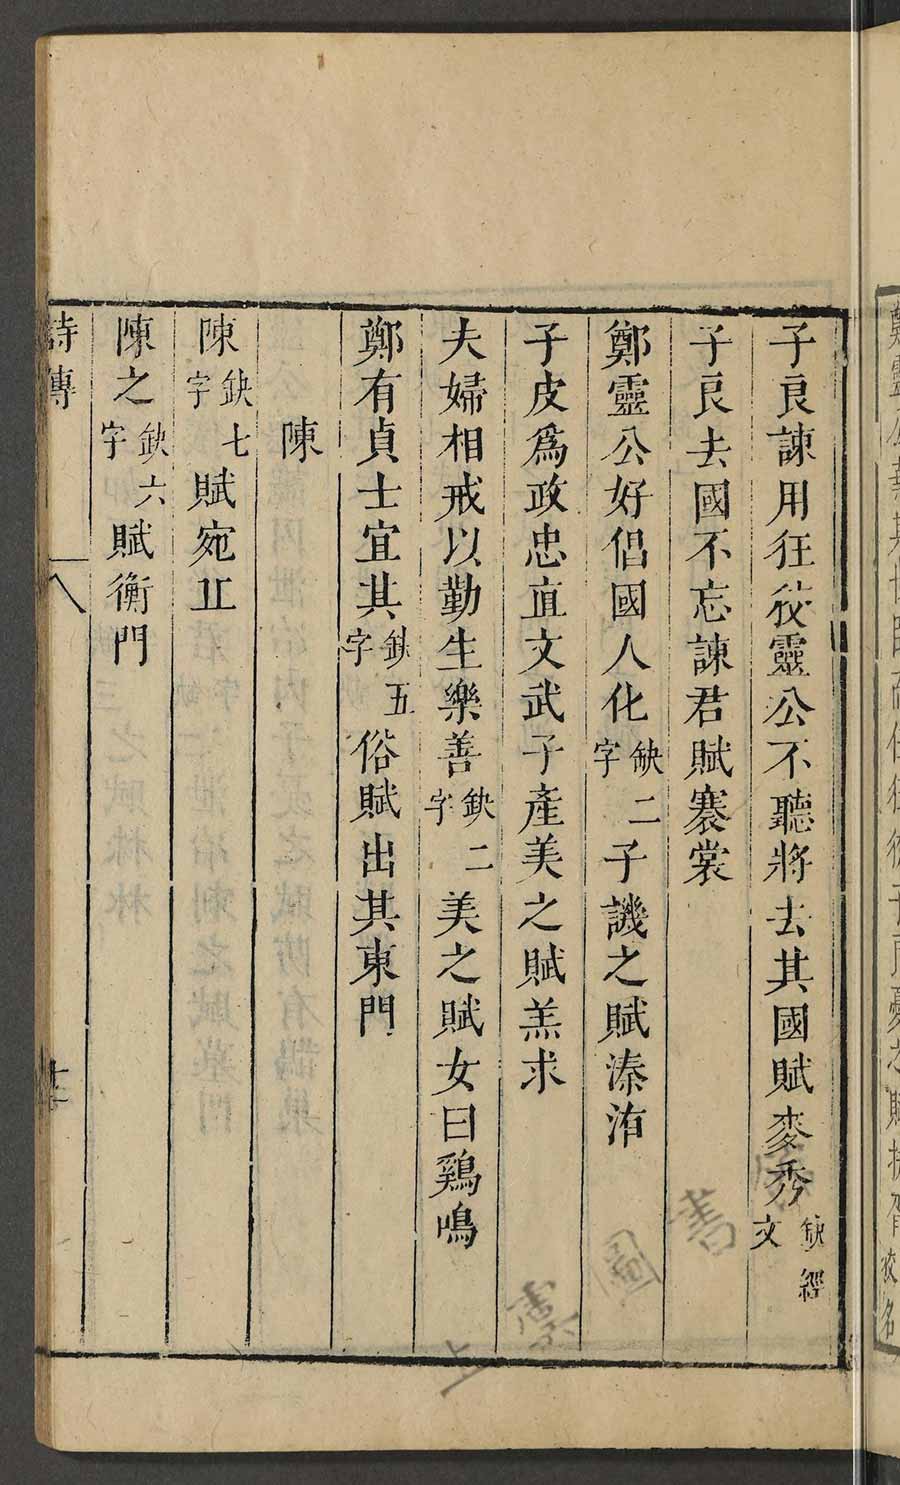 子良諫用狂狡靈公不聽將去其國賦麥秀缺經文
子良去國不忘諫君賦褰裳
鄭靈公好倡國人化缺二字子譏之賦溱洧
子皮為政忠直文武子產美之賦羔求
夫婦相戒以勤生樂善缺二字美之賦女曰鷄鳴
鄭有貞士宜其缺五字俗賦出其東門
陳
陳缺七字賦宛丘
陳之缺六字賦衡門
詩傳